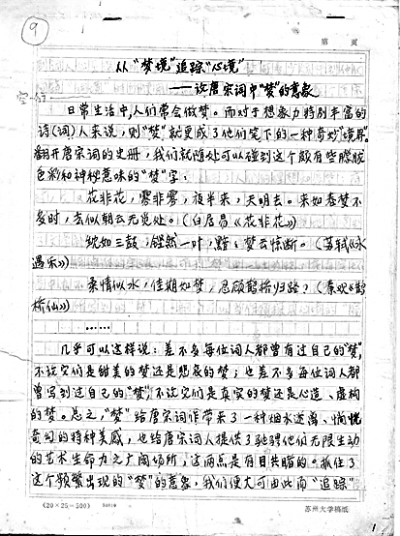 9
第 页
从"梦境"追踪"心境"
——谈唐宋词中"梦"的意象
空一行
日常生活中,人们常会做梦。而对于想象力特别丰富的
诗(词)人来说,则"梦"就更成了他们笔下的一种奇妙"境界"。
翻开唐宋词的史册,我们就随处可以碰到这个颇有些朦胧
色彩和神秘意味的"梦"字:
花非花,雾非雾,夜半来,天明去。来如春梦不
多时,去似朝云无觅处。(白居易《花非花》)
紞如三鼓,铿然一叶,黯黯梦云惊断。(苏轼《永
遇乐》)
柔情似水,佳期如梦,忍顾鹊桥归路?(秦观《鹊
桥仙》)
……
几乎可以这样说:差不多每位词人都曾有过自己的"梦",
不论它们是甜美的梦还是悲哀的梦;也差不多每位词人都
曾写到过自己的"梦",不论它们是真实的梦还是心造、虚构
的梦。总之,"梦"给唐宋词作带来了一种烟水迷离、惝恍
奇幻的特种美感,也给唐宋词人提供了驰骋他们无限生动
的艺术生命力之广阔场所,这两点是有目共睹的。抓住了
这个频繁出现的"梦"的意象,我们便大可由此而"追踪"
(20×25=500)
苏州大学稿纸
1